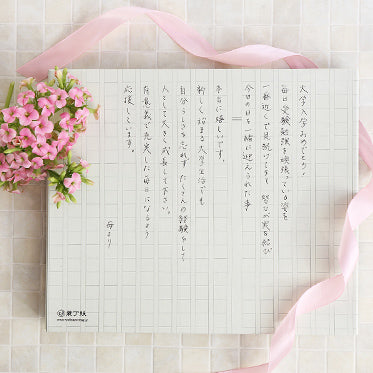 大学入学おめでとう！
毎日受験勉強を頑張っている姿を
一番近くで見続けてきて 努力が実を結び
今日の日を一緒に迎えられた事
本当に嬉しいです。
新しく始まる大学生活でも
自分らしさを忘れず たくさんの経験をして
人として大きく成長して下さい。
有意義で充実した毎日になるよう
応援しています。
母より